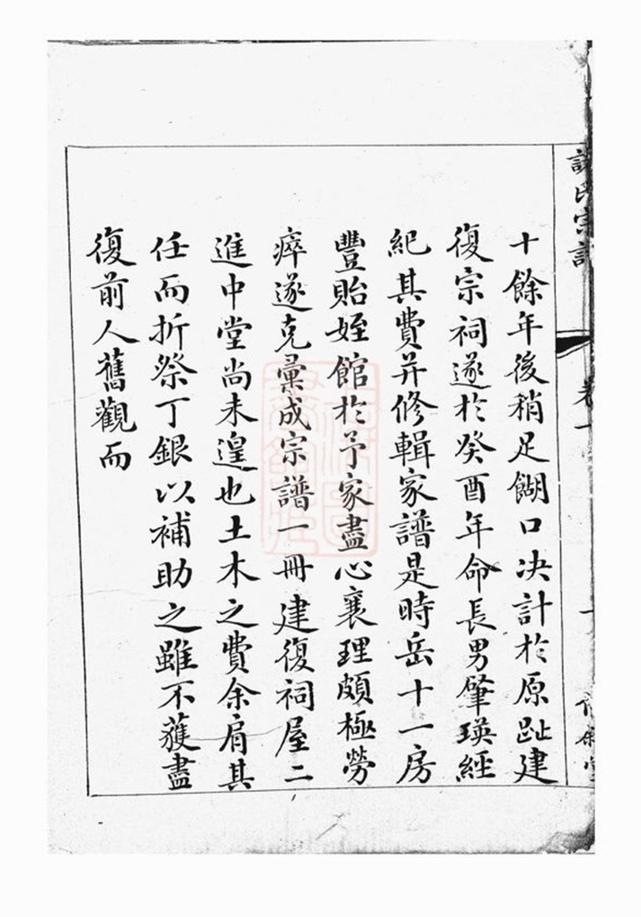 十餘年後稍足餬口决計於原趾建
復宗祠遂於癸酉年命長男肇瑛經
紀其費并修輯家譜是時岳十一房
豐貽姪館於予家盡心襄理頗極勞
瘁遂克彙成宗譜一冊建復祠屋二
進中堂尚未遑也土木之費余肩其
任而折祭丁銀以補助之雖不蒦盡
復前人舊觀而